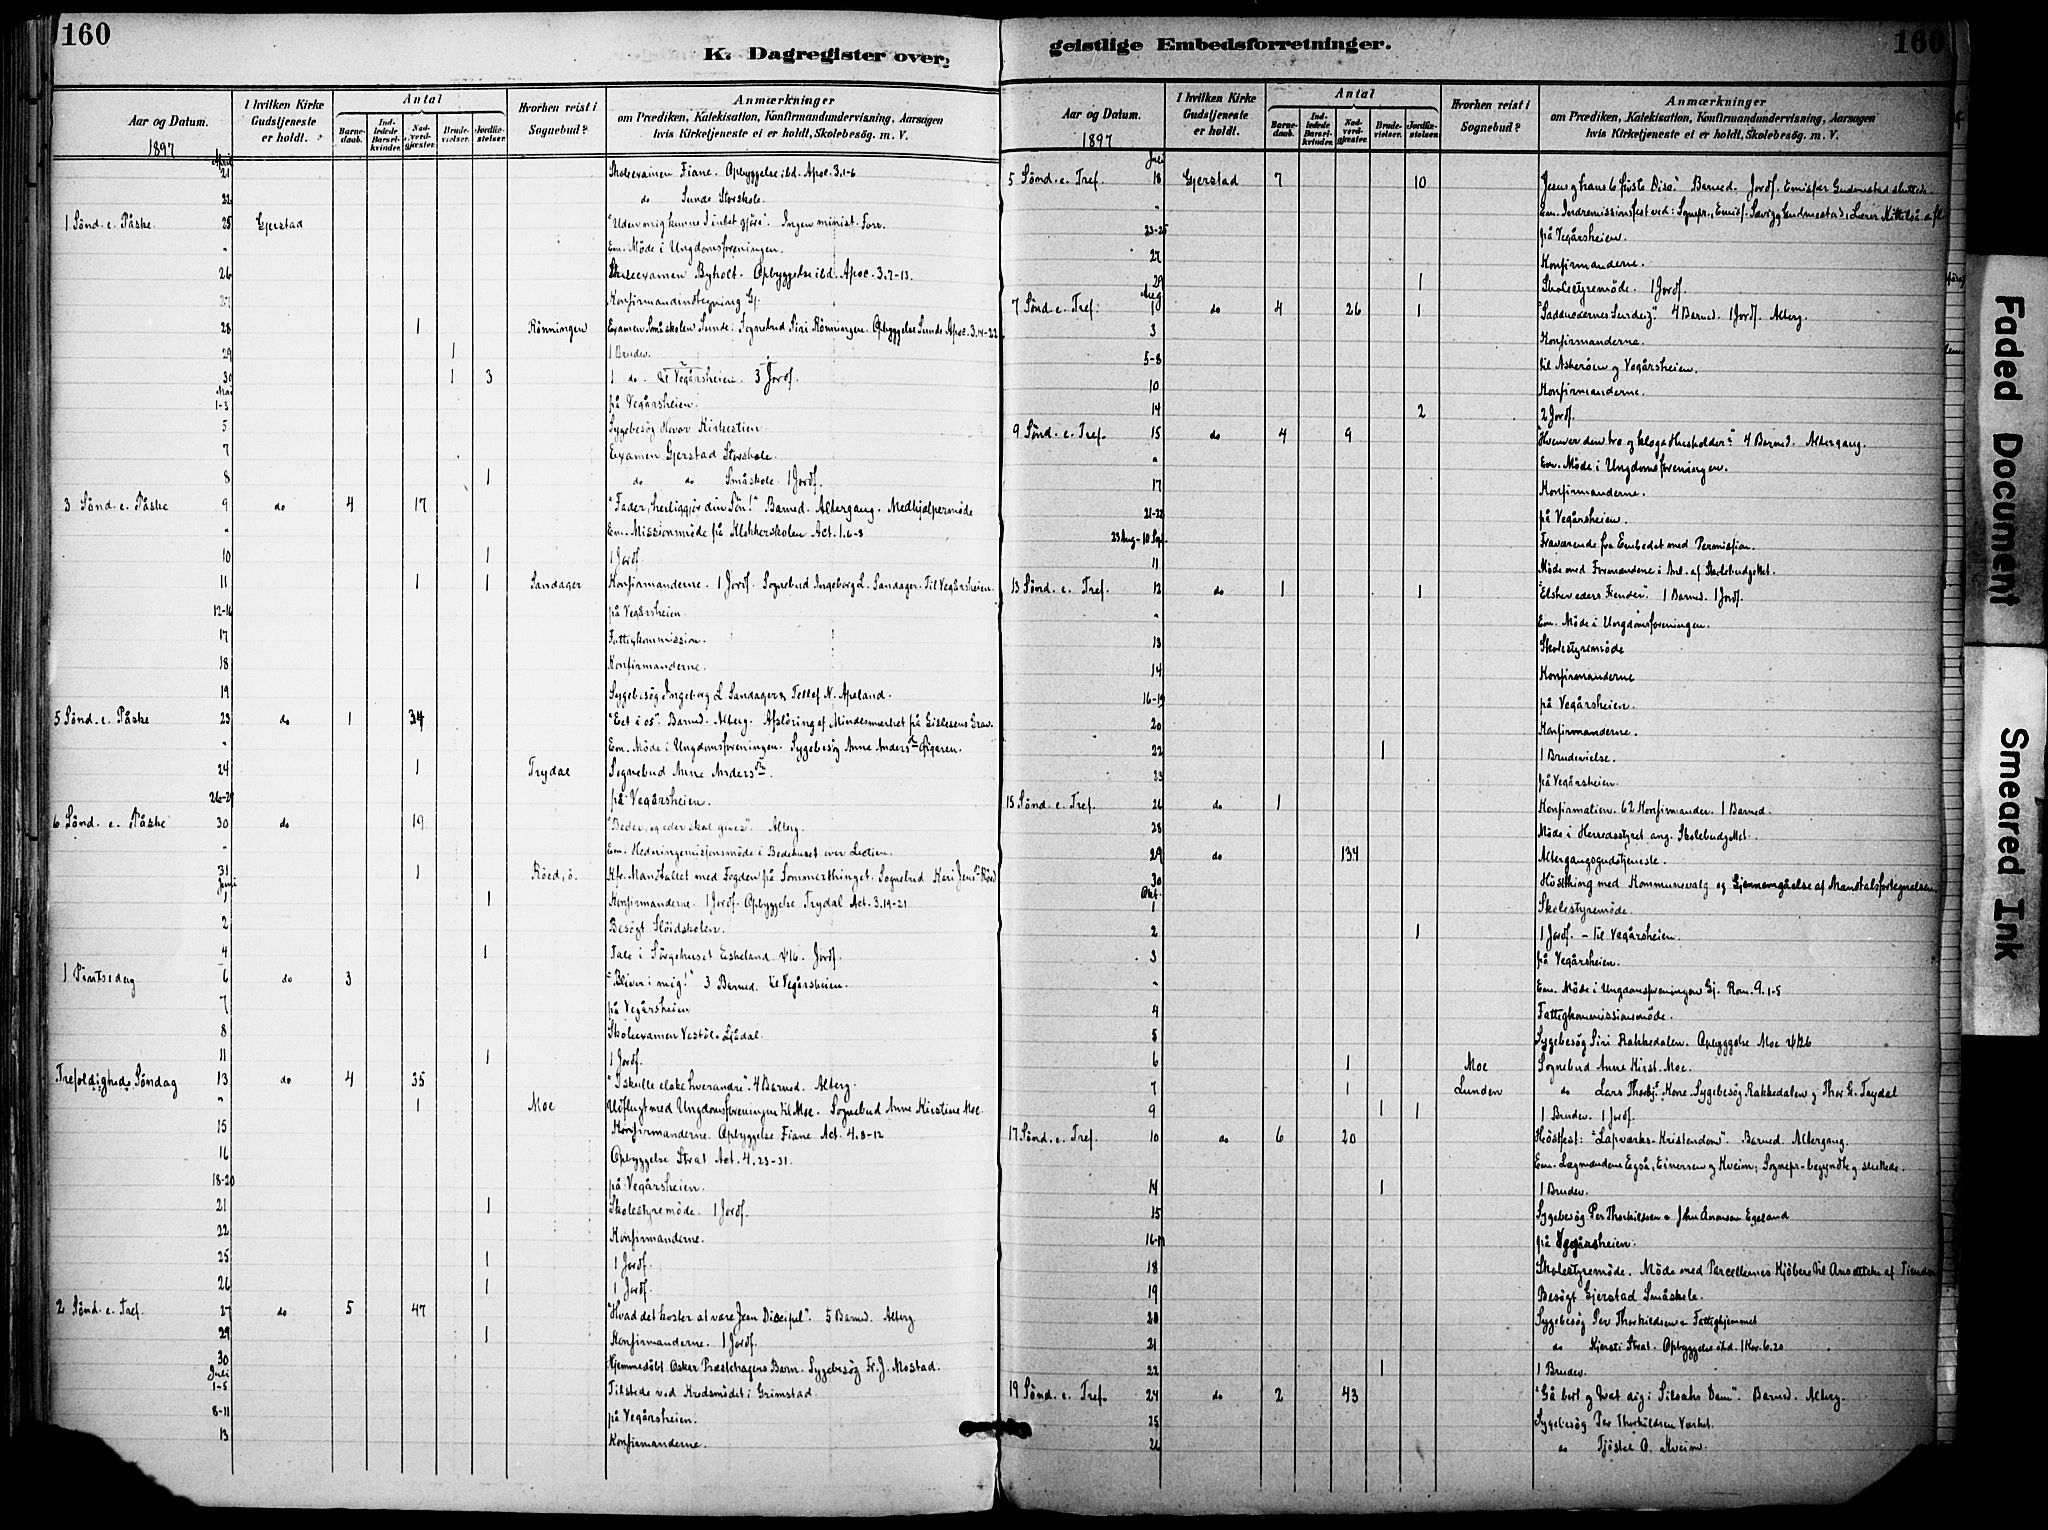 160
K. Dagregister over
Aar og Datum.
I hvilken Kirke Gudstjeneste er holdt.
Antal
Barnedaab.
Indledede Barselkvinder.
Nadverdgjæster.
Brudevielser.
Jordfæstelser.
Hvorhen reist i Sognebud?
Anmærkninger
om Prædiken, Katekisation, Konfirmandundervisning, Aarsagen
hvis Kirketjeneste ei er holdt, Skolebesøg. m. V.
1897
April
21 Skoleexamen Fiane. Opbyggelse ibd. Apoc. 3.1-6
22 do Sunde Storskole.
1 Sønd. e. Påske 25 Gjerstad "Uden mig kunne I intet gjøre". Ingen minist. Forr.
" Em. Møde i Ungdomsforeningen.
26 Skoleexamen Byholt. Opbyggelse ibd. Apoc. 3.7-13.
27 Konfirmandindtegning Gj.
28 1 Rönningen Examen Småskolen Sunde. Sognebud Siri Rönningen. Opbyggelse Sunde Apoc. 3.14-22
29 1 1 Brudev.
30 1 3 1 do. til Vegårsheien. 3 Jordf.
Mai
1-3 på Vegårsheien.
5 Sygebesøg Halvor Kirkestien.
7 Examen Gjerstad Storskole.
8 1 do do Småskole. 1 Jordf.
3 Sønd. e. Påske 9 do 4 17 "Fader, herliggjør din Søn!" Barned. Altergang. Medhjælpermøde
" Em. Missionsmøde på Klokkerskolen Act. 1.6-8
10 1 1 Jordf.
11 1 1 Sandager Konfirmanderne. 1 Jordf. Sognebud Ingeborg L. Sandager. Til Vegårsheien.
12-16 på Vegårsheien.
17 Fattigkommission.
18 Konfirmanderne.
19 Sygebesøg Ingeborg L Sandager & Tellef N. Apeland.
5 Sønd. e. Påske 23 do 1 34 "Eet i os". Barned. Alterg. Afsløring af Mindesmærket på Gislesens Grav.
" Em. Møde i Ungdomsforeningen. Sygebesøg Anne Anders
24 1 Trydal Sognebud Anne Anders
26-29 på Vegårsheien.
6 Sønd. e. Påske 30 do 19 "Beder, og eder skal gives". Alterg.
" Em. Hedningemissionsmøde i Bedehuset over Lectien.
31 1 Röed, ö. Mandtallet med Fogden på Sommerthinget. Sognebud Kari Jens Röed
Juni
1 1 Konfirmanderne. 1 Jordf. Opbyggelse Trydal Act. 3.19-21
2 Besøgt Sløidskolen.
4 1 Tale i Sørgehuset Eskeland ψ 16. Jordf.
1 Pintsedag 6 do 3 "Bliver i mig!" 3 Barned. til Vegårsheien.
7 på Vegårsheien
8 Skoleexamen Vestøl
11 1 1 Jordf.
Trefoldigheds Søndag 13 do 4 35 "I skulle elske hverandre". 4 Barned. Alterg.
" 1 Moe Udflugt med Ungdomsforeningen til Moe. Sognebud Anne Kirstine Moe.
15 Konfirmanderne. Opbyggelse Fiane Act. 4.8-12
16 Opbyggelse Strat Act. 4.23-31.
18-20 på Vegårsheien.
21 1 Skolestyremøde. 1 Jordf.
22 Konfirmanderne.
25 1 1 Jordf.
26 1 1 Jordf.
2 Sønd. e. Tref. 27 do 5 47 "Hvad det koster at være Jesu Discipel". 5 Barned. Alterg.
29 1 Konfirmanderne. 1 Jordf.
30 Hjemmedøbt Oskar Præstehagens Barn. Sygebesøg Fr. J. Mostad.
Juli
1-5 Tilstede ved Kredsmødet i Grimstad.
8-11 på Vegårsheien.
13 Konfirmanderne.
geistlige Embedsforretninger.
160
Aar og Datum.
I hvilken Kirke Gudstjeneste er holdt.
Antal
Barnedaab.
Indledede Barselkvinder.
Nadverdgjæster.
Brudevielser.
Jordfæstelser.
Hvorhen reist i Sognebud?
Anmærkninger
om Prædiken, Katekisation, Konfirmandundervisning, Aarsagen
hvis Kirketjeneste ei er holdt, Skolebesøg. m. V.
1897
Juli
5 Sønd. e. Tref. 18 Gjerstad 7 10 "Jesus og hans 6 første Disc." Barned. Jordf. Emissær Gudmestad sluttede.
" Em. Indremissionsfest ved: Sognepr., Emiss. Gudmestad, Lærer
23-25 på Vegårsheien.
27 Konfirmanderne.
29 1 Skolestyremøde. 1 Jordf.
Aug
7 Sønd. e. Tref. 1 do 4 26 1 "Saddukæernes Surdeig". 4 Barned. 1 Jordf. Alterg.
3 Konfirmanderne.
5-8 til Askerøen og Vegårsheien.
10 Konfirmanderne.
14 2 2 Jordf.
9 Sønd. e. Tref. 15 do 4 9 "Hvem er den tro og kloge Husholder?" 4 Barned. Altergang.
" Em. Møde i Ungdomsforeningen.
17 Konfirmanderne.
21-22 på Vegårsheien.
23 Aug - 10 Sep. Fraværende fra Embedet med Permission.
11 Møde med Formændene i Anl. af Skolebudgettet.
13 Sønd. e. Tref. 12 do 1 1 "Elsker eders Fiender". 1 Barned. 1 Jordf.
" Em. Møde i Ungdomsforeningen.
13 Skolestyremøde
14 Konfirmanderne
16-19 på Vegårsheien.
20 Konfirmanderne.
22 1 1 Brudevielse.
23 på Vegårsheien.
15 Sønd. e. Tref. 26 do 1 Konfirmation. 62 Konfirmander. 1 Barned.
28 Møde i Herredsstyret ang. Skolebudgettet.
29 do 134 Altergangsgudstjeneste.
30 Høstthing med Kommunevalg og Gjennemgåelse af Mandtalsfortegnelsen.
Okt.
1 Skolestyremøde.
2 1 1 Jordf. - til Vegårsheien.
3 på Vegårsheien.
" Em. Møde i Ungdomsforeningen Gj. Rom. 9.1-5
4 Fattigkommissionsmøde.
5 Sygebesøg Siri Rakkedalen. Opbyggelse Moe ψ 126
6 1 Moe Sognebud Anne Kirst. Moe.
7 1 Lunden do Lars Thorbj. Kone. Sygebesøg Rakkedalen og Thor G. Trydal
9 1 1 1 Brudev. 1 Jordf.
17 Sønd. e. Tref. 10 do 6 20 Høstfest: "Lapværks-Kristendom". Barned. Altergang.
Em. Lægmændene Egså, Einersen og Kveim, Sognepr. begyndte og sluttede.
14 1 1 Brudev.
15 Sygebesøg Per Thorkildsen & John Aronsen Egeland
16-17 på Vegårsheien.
18 Skolestyremøde. Møde med Parcellernes Kjøbere til Ansættelse af Tienden
19 Besøgt Gjerstad Småskole.
20 Sygebesøg Per Thorkildsen & Fattighjemmet
21 do Kjersti Strat. Opbyggelse ibd. 1 Kor. 6.20
22 1 1 Brudev.
19 Sønd. e. Tref. 24 do 2 43 "Gå bort og tvæt dig i Siloahs Dam". Barned. Alterg.
25 Sygebesøg Per Thorkildsen
26 do Tjöstel O. Kveim.
Faded Document
Smeared Ink